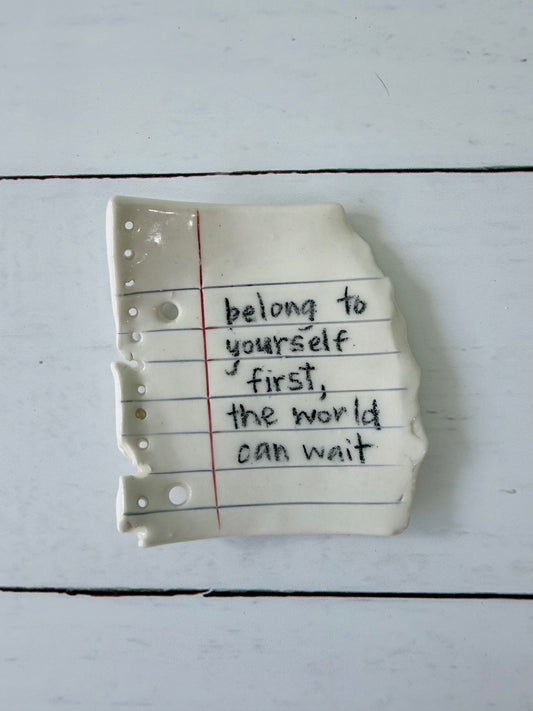 belong to
yourself
first,
the world
can wait